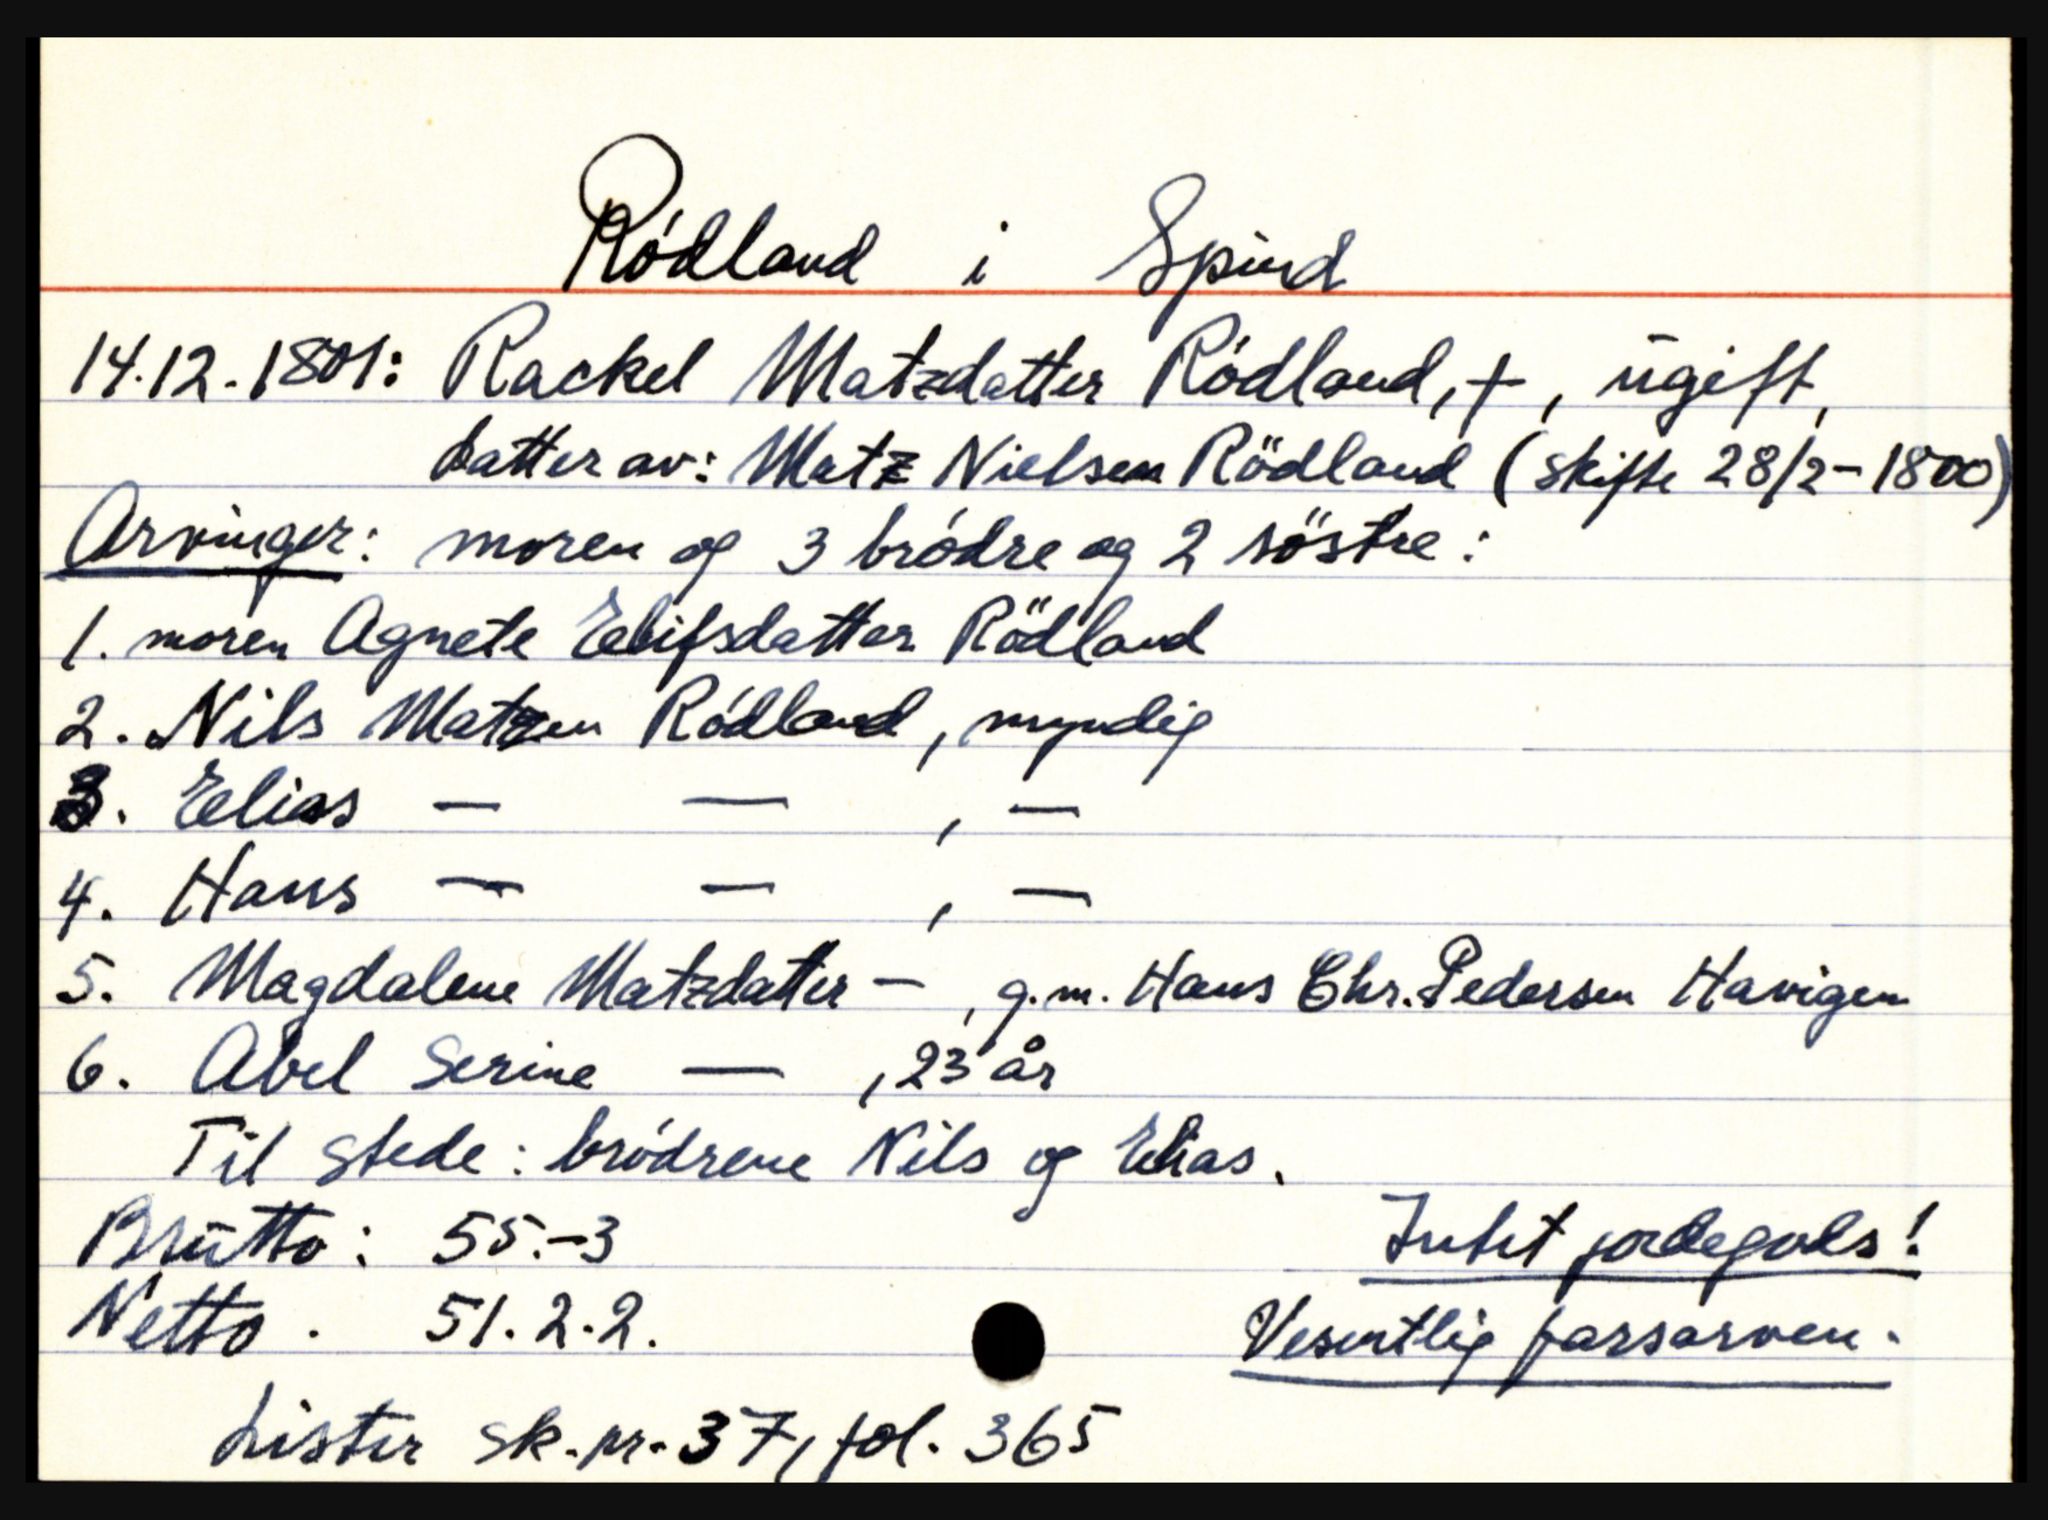 Rödland i Spind
14.12.1801: Rackel Matzdatter Rödland, +, ugift,
datter av: Matz Nielsen Rödland (skifte 28/2-1800)
Arvinger: moren og 3 brödre og 2 söstre:
1. moren Agnete Eelifsdatter Rödland
2. Nils Matzen Rödland, myndig
3. Eelias — — , —
4. Hans — — , —
5. Magdalene Matzdatter — , g.m. Hans Chr. Pedersen Havigen
6. Abel Serine — , 23 år
Til stede: brödrene Nils og Elias.
Brutto: 55.-3 Intet jordegods!
Netto. 51.2.2. Vesentlig farsarven.
Lister sk.pr. 37, fol. 365